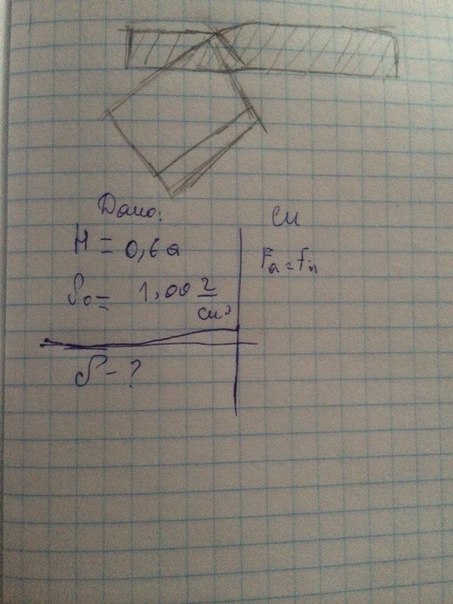 Дано:
H = 0,6a
ρ₀ = 1,00 г/см³
ρ - ?
СИ
Fа = Fт